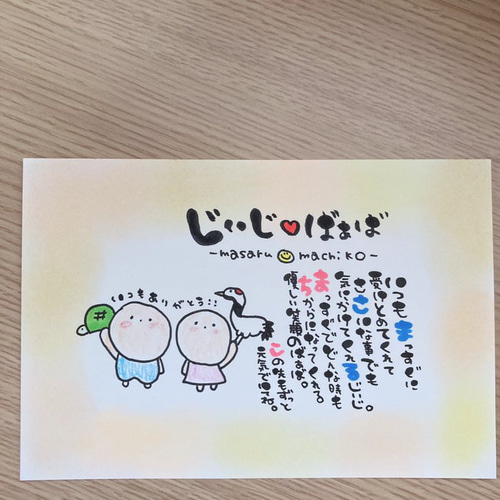 じぃじ♥ばぁば
-masaru machiko-
いつもありがとう!!
いつもまっすぐに
受けとめてくれて
ささいな事でも
気にかけてくれるじいじ
まっすぐでどんな時も
ちからになってくれる。
優しい笑顔のばぁば。
この味もずっと
元気でいてね。